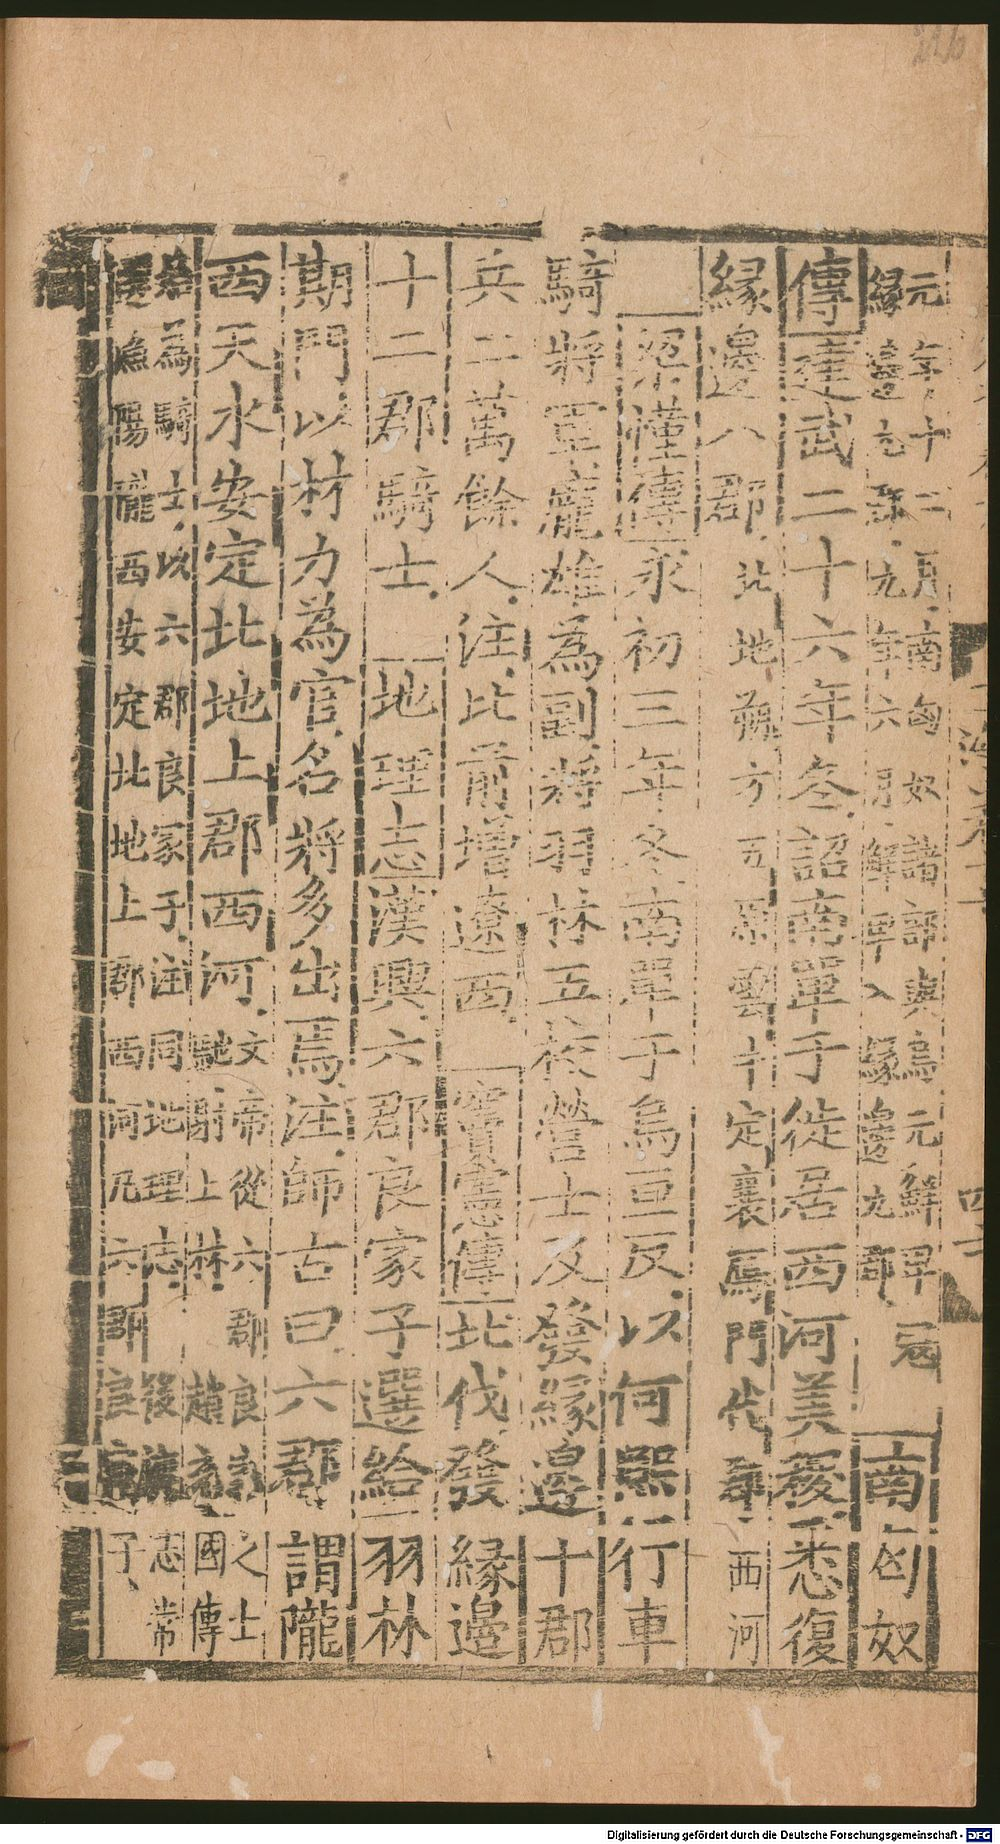 元年十二月南匈奴諸部與烏元鮮卑冦
緣邊九郡元年六月鮮卑入緣邊九郡
南匈奴
傳建武二十六年冬詔南單于徙居西河美稷悉復
緣邊八郡北地朔方五原雲中定襄鴈門代郡西河
梁慬傳永初三年冬南單于烏亘反以何熙行車
騎將軍龐雄為副將羽林五校營士及發緣邊十郡
兵二萬餘人注比前增遼西竇憲傳北伐發緣邊
十二郡騎士地理志漢興六郡良家子選給羽林
期門以材力為官名將多出焉注師古曰六郡謂隴
西天水安定北地上郡西河
文帝從六郡良家之士
馳射上林趙充國傳
為騎士以六郡良家子注同地理志後漢志常
選漁陽隴西安定北地上郡西河凡六郡良家子
Digitalisierung gefördert durch die Deutsche Forschungsgemeinschaft - DFG